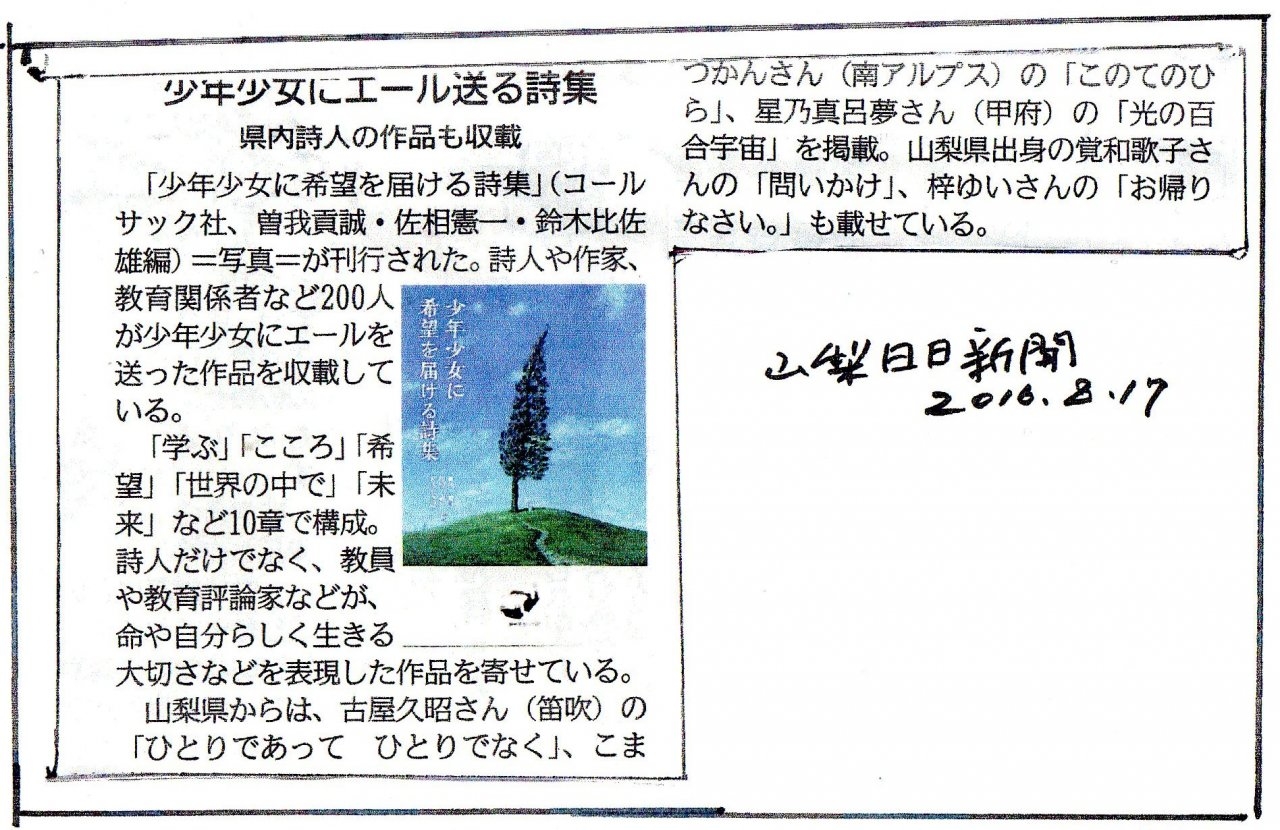 少年少女にエール送る詩集
県内詩人の作品も収載
「少年少女に希望を届ける詩集」(コール
サック社、曽我貢誠・佐相憲一・鈴木比佐
雄編)=写真=が刊行された。詩人や作家、
教育関係者など200人
が少年少女にエールを
送った作品を収載して
いる。
「学ぶ」「こころ」「希
望」「世界の中で」「未
来」など10章で構成。
詩人だけでなく、教員
や教育評論家などが、
命や自分らしく生きる
大切さなどを表現した作品を寄せている。
山梨県からは、古屋久昭さん(笛吹)の
「ひとりであって　ひとりでなく」、こま
つかんさん(南アルプス)の「このてのひ
ら」、星乃真呂夢さん(甲府)の「光の百
合宇宙」を掲載。山梨県出身の覚和歌子さ
んの「問いかけ」、梓ゆいさんの「お帰り
なさい。」も載せている。
少年少女に
希望を届ける詩集
山梨日日新聞
2016.8.17